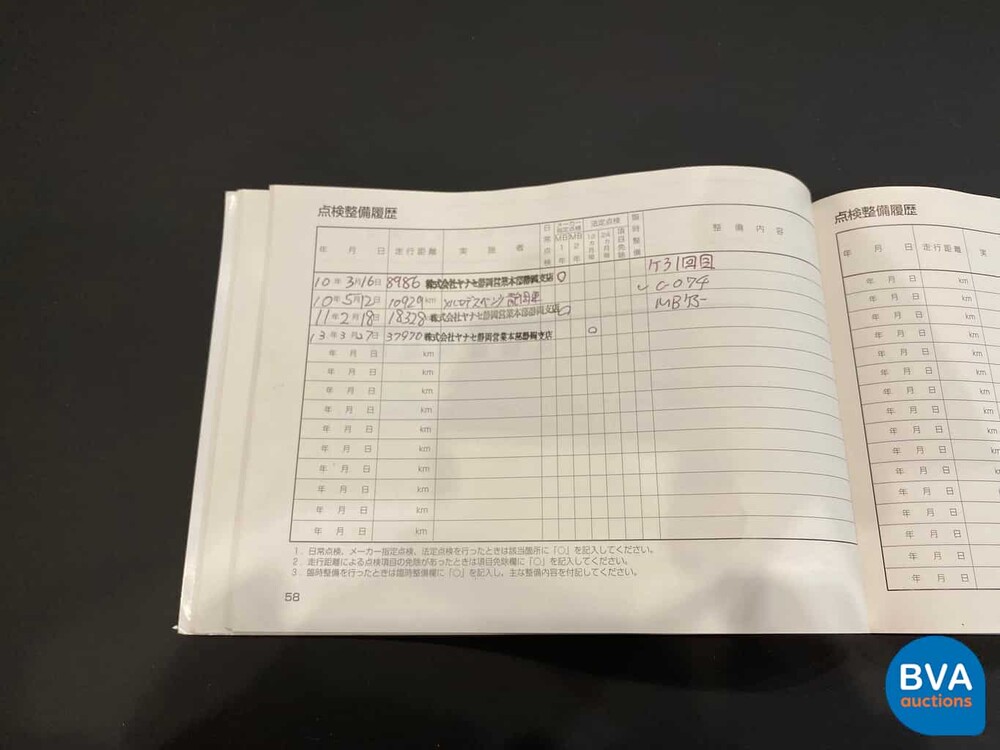 点検整備履歴
年 月 日 走行距離 実施者 日常点検 メーカー指定点検 MB1年 MB2年 法定点検 12ヵ月点検 24ヵ月点検 項目免除 臨時整備 整備内容
10年3月16日 8986 株式会社ヤナセ静岡営業本部静岡支店 ○
10年5月12日 10929km
11年2月18日 18328 株式会社ヤナセ静岡営業本部静岡支店 ○
13年3月27日 37970 株式会社ヤナセ静岡営業本部静岡支店 ○
年 月 日 km
年 月 日 km
年 月 日 km
年 月 日 km
年 月 日 km
年 月 日 km
年 月 日 km
年 月 日 km
年 月 日 km
年 月 日 km
1. 日常点検、メーカー指定点検、法定点検を行ったときは該当箇所に「○」を記入してください。
2. 走行距離による点検項目の免除があったときは項目免除欄に「○」を記入してください。
3. 臨時整備を行ったときは臨時整備欄に「○」を記入し、主な整備内容を付記してください。
58
点検整備履歴
年 月 日 走行距離 実
年 月 日 km
年 月 日 km
年 月 日 km
年 月 日 km
年 月 日 km
年 月 日 km
年 月 日 km
年 月 日 km
年 月 日 km
年 月 日 km
年 月 日 km
年 月 日 km
年 月 日 km
年 月 日 km
BVA
auctions